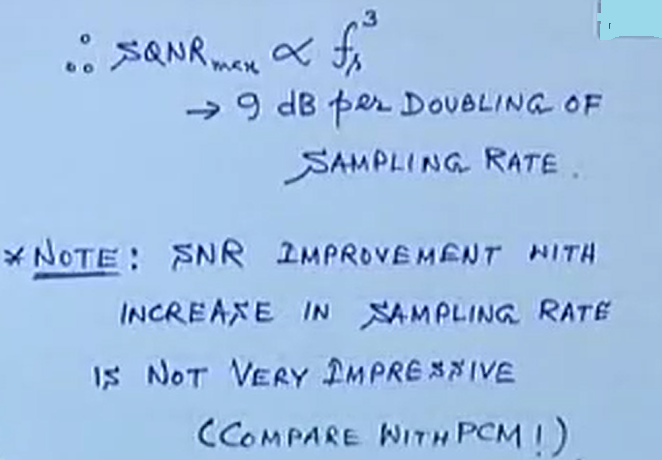 ∴ SQNRmax ∝ fs³
→ 9 dB per DOUBLING OF
SAMPLING RATE.
* NOTE: SNR IMPROVEMENT WITH
INCREASE IN SAMPLING RATE
IS NOT VERY IMPRESSIVE
(COMPARE WITH PCM!)